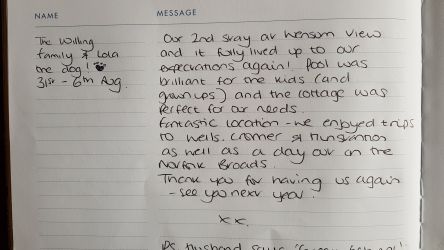 NAME
MESSAGE
The Willing
family & Lola
the dog!
31st - 6th Aug.
Our 2nd stay at Wensum View
and it fully lived up to our
expectations again! Pool was
brilliant for the kids (and
grown ups) and the cottage was
perfect for our needs.
Fantastic location - we enjoyed trips
to Wells, Cromer & Hunstanton
as well as a day out on the
Norfolk Broads.
Thank you for having us again
- see you next year.
xx.
PS Husband says